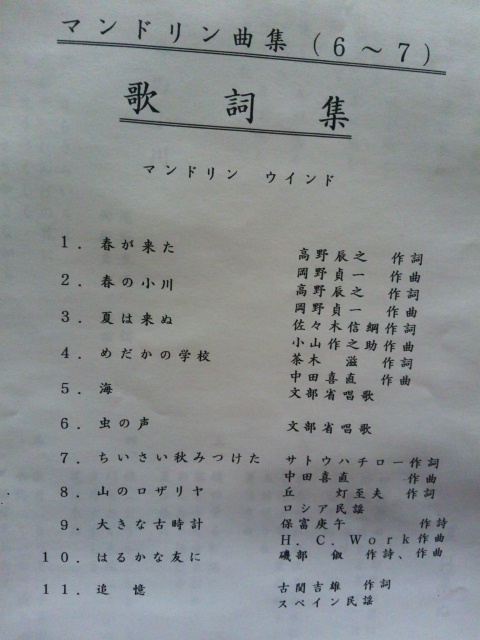 マンドリン曲集(6～7)
歌詞集
マンドリン ウインド
1. 春が来た 高野辰之 作詞
岡野貞一 作曲
2. 春の小川 高野辰之 作詞
岡野貞一 作曲
3. 夏は来ぬ 佐々木信綱 作詞
小山作之助 作曲
4. めだかの学校 茶木 滋 作詞
中田喜直 作曲
5. 海 文部省唱歌
6. 虫の声 文部省唱歌
7. ちいさい秋みつけた サトウハチロー 作詞
中田喜直 作曲
8. 山のロザリヤ 丘 灯至夫 作詞
ロシア民謡
9. 大きな古時計 保富庚午 作詩
H.C.Work 作曲
10. はるかな友に 磯部 俶 作詩、作曲
11. 追 憶 古関吉雄 作詞
スペイン民謡